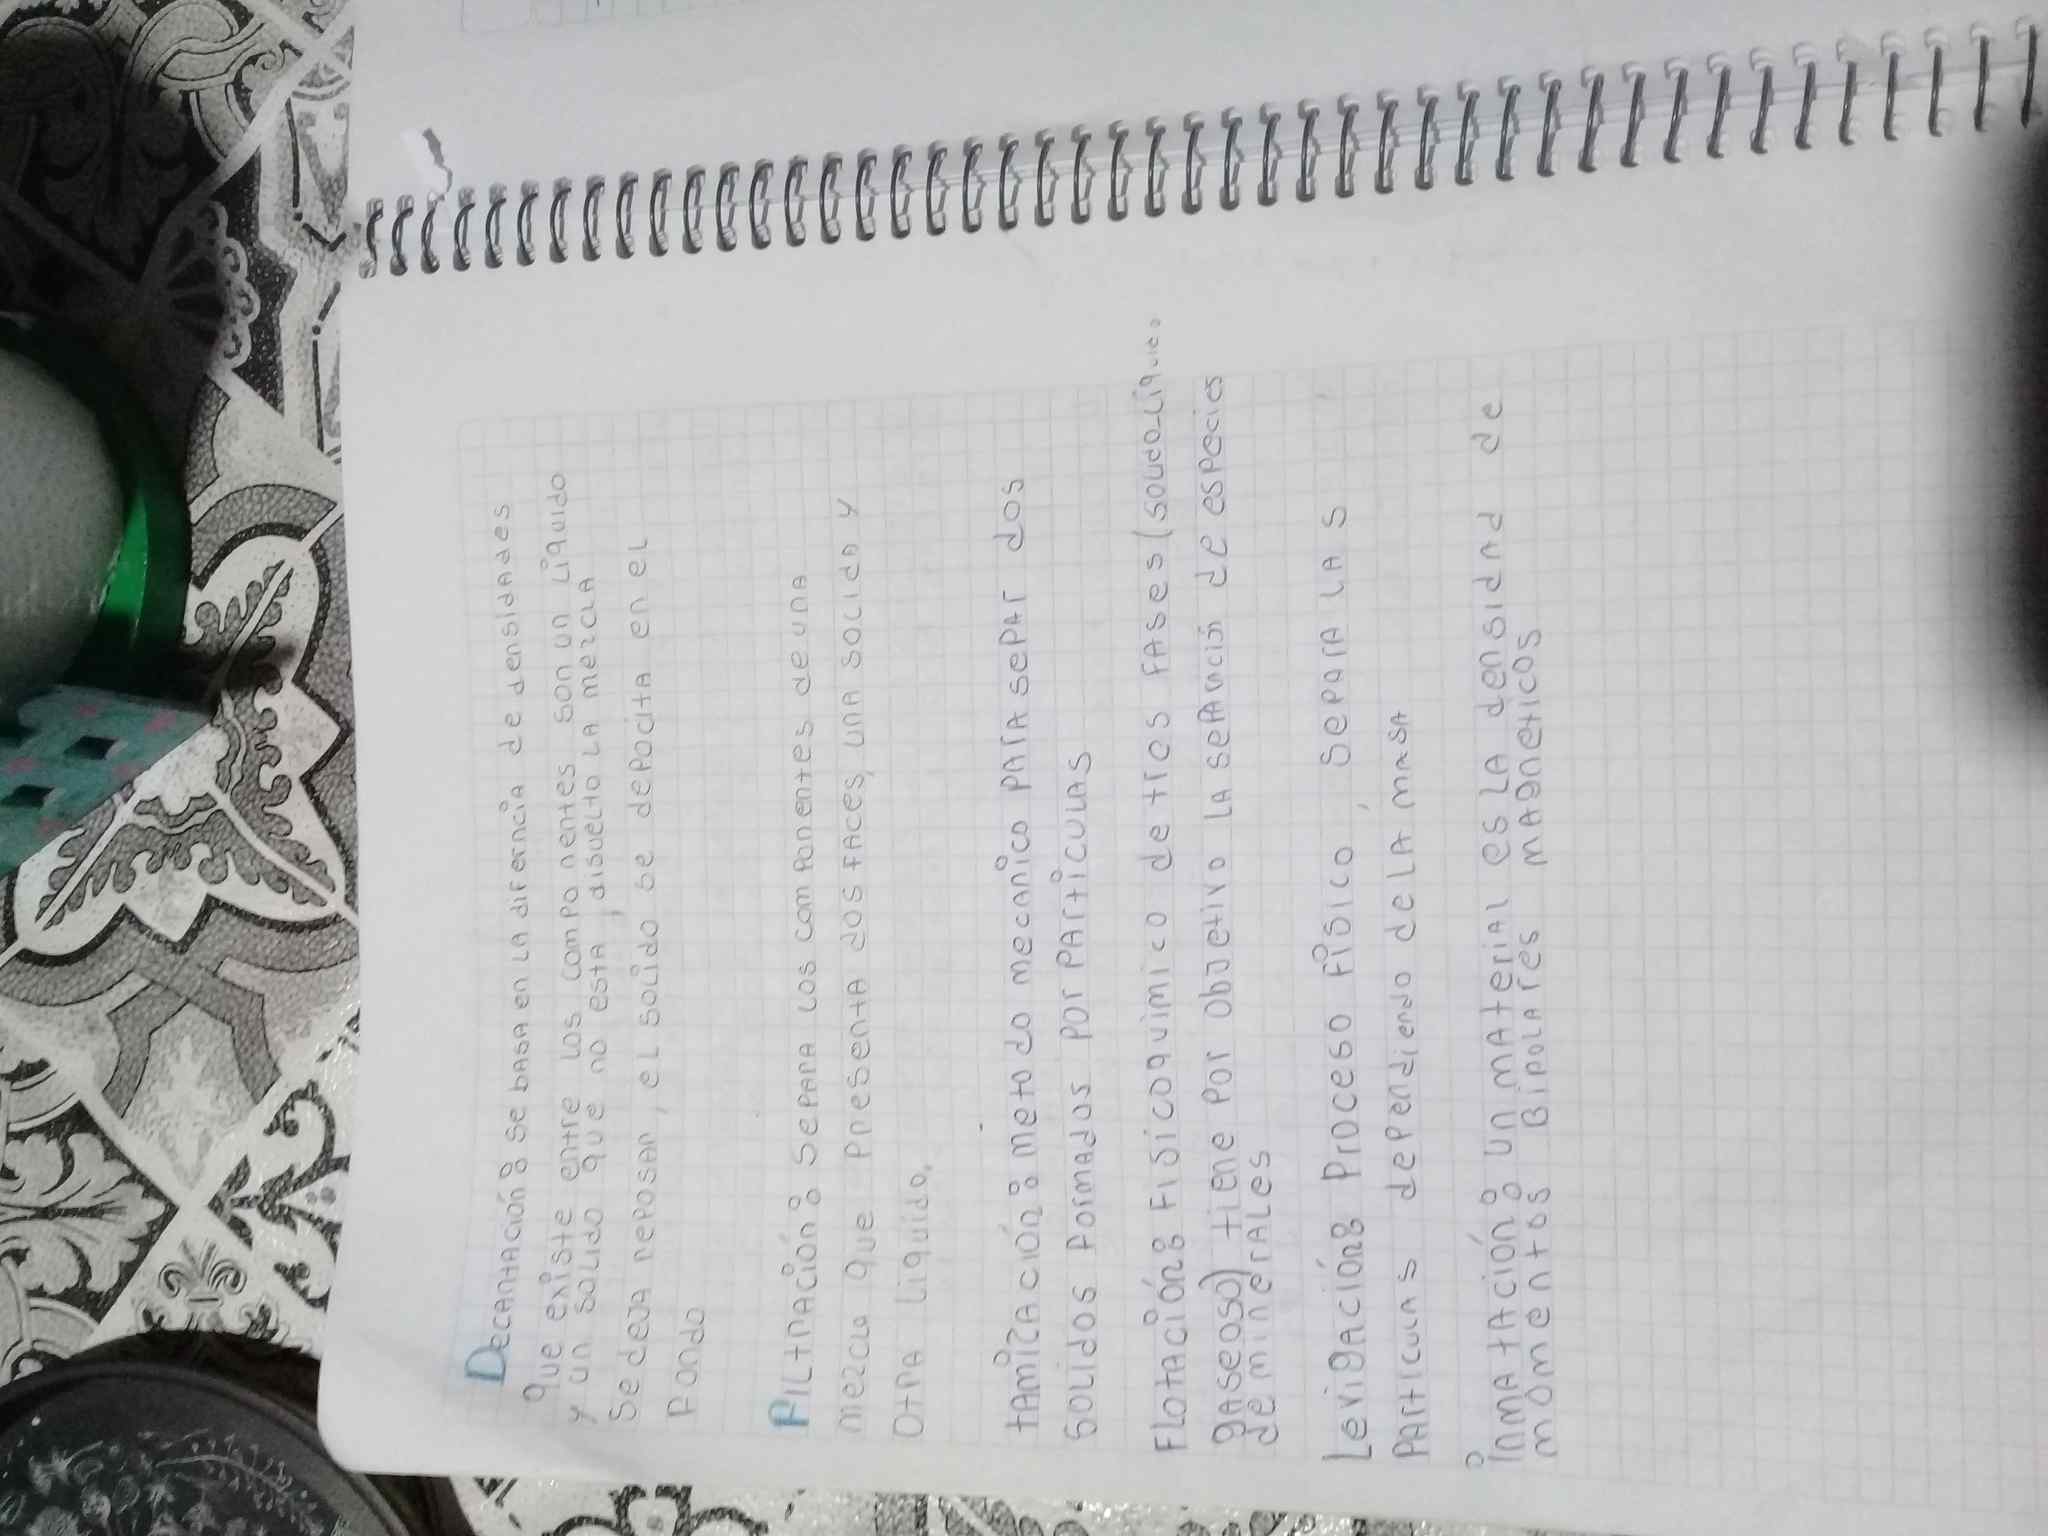 Decantación: se basa en la diferncia de densidades
que existe entre los componentes son un liquido
y un solido que no esta, disuelto la mezcla
Se deja reposar, el solido se depocita en el
Fondo
Filtración: separa los componentes de una
mezcla que presenta dos faces, una solida y
otra liquido.
tamización: metodo mecanico para separ dos
solidos formados por particulas
Flotación: Fisicoquimico de tres fases (solido_liquido
gaseoso) tiene por objetivo la separación de especies
de minerales
Levigación: Proceso Fisico, separa las
particulas dependiendo de la masa
inmatación: un material es la densidad de
momentos Bipolares magneticos